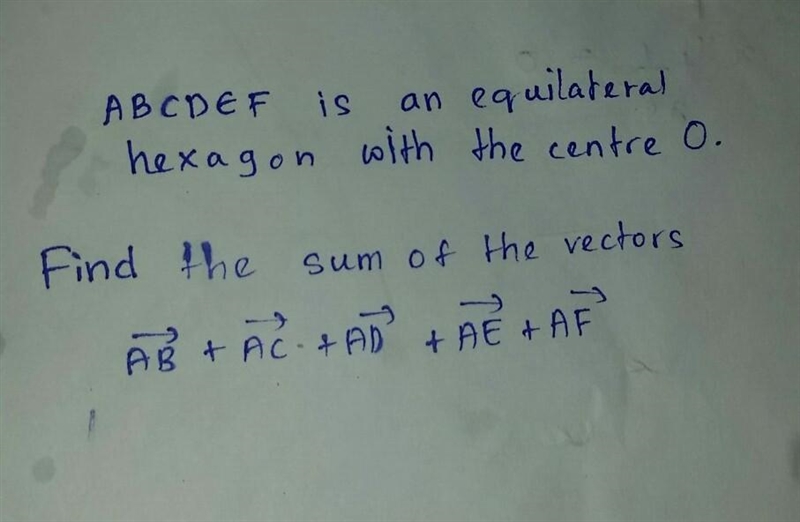 ABCDEF is an equilateral
hexagon with the centre O.
Find the sum of the vectors
$\overrightarrow{AB} + \overrightarrow{AC} + \overrightarrow{AD} + \overrightarrow{AE} + \overrightarrow{AF}$